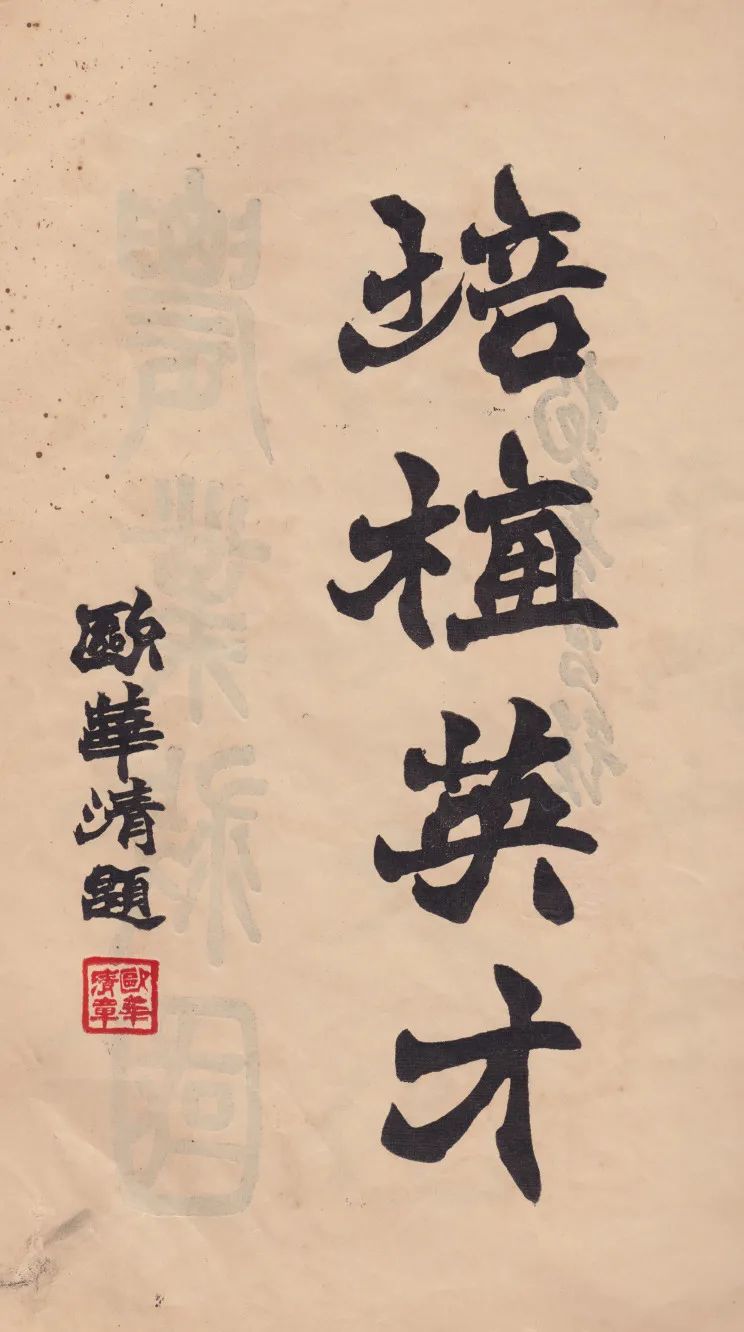 培植英才
歐華清題
歐華清章